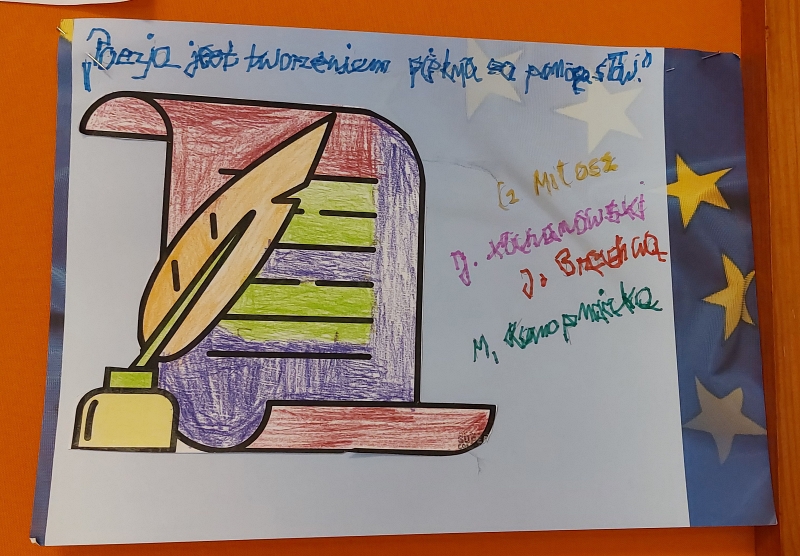 „Poezja jest tworzeniem piękna za pomocą słów."
Cz Miłosz
J. Kochanowski
J. Brzechwa
M. Konopnicka